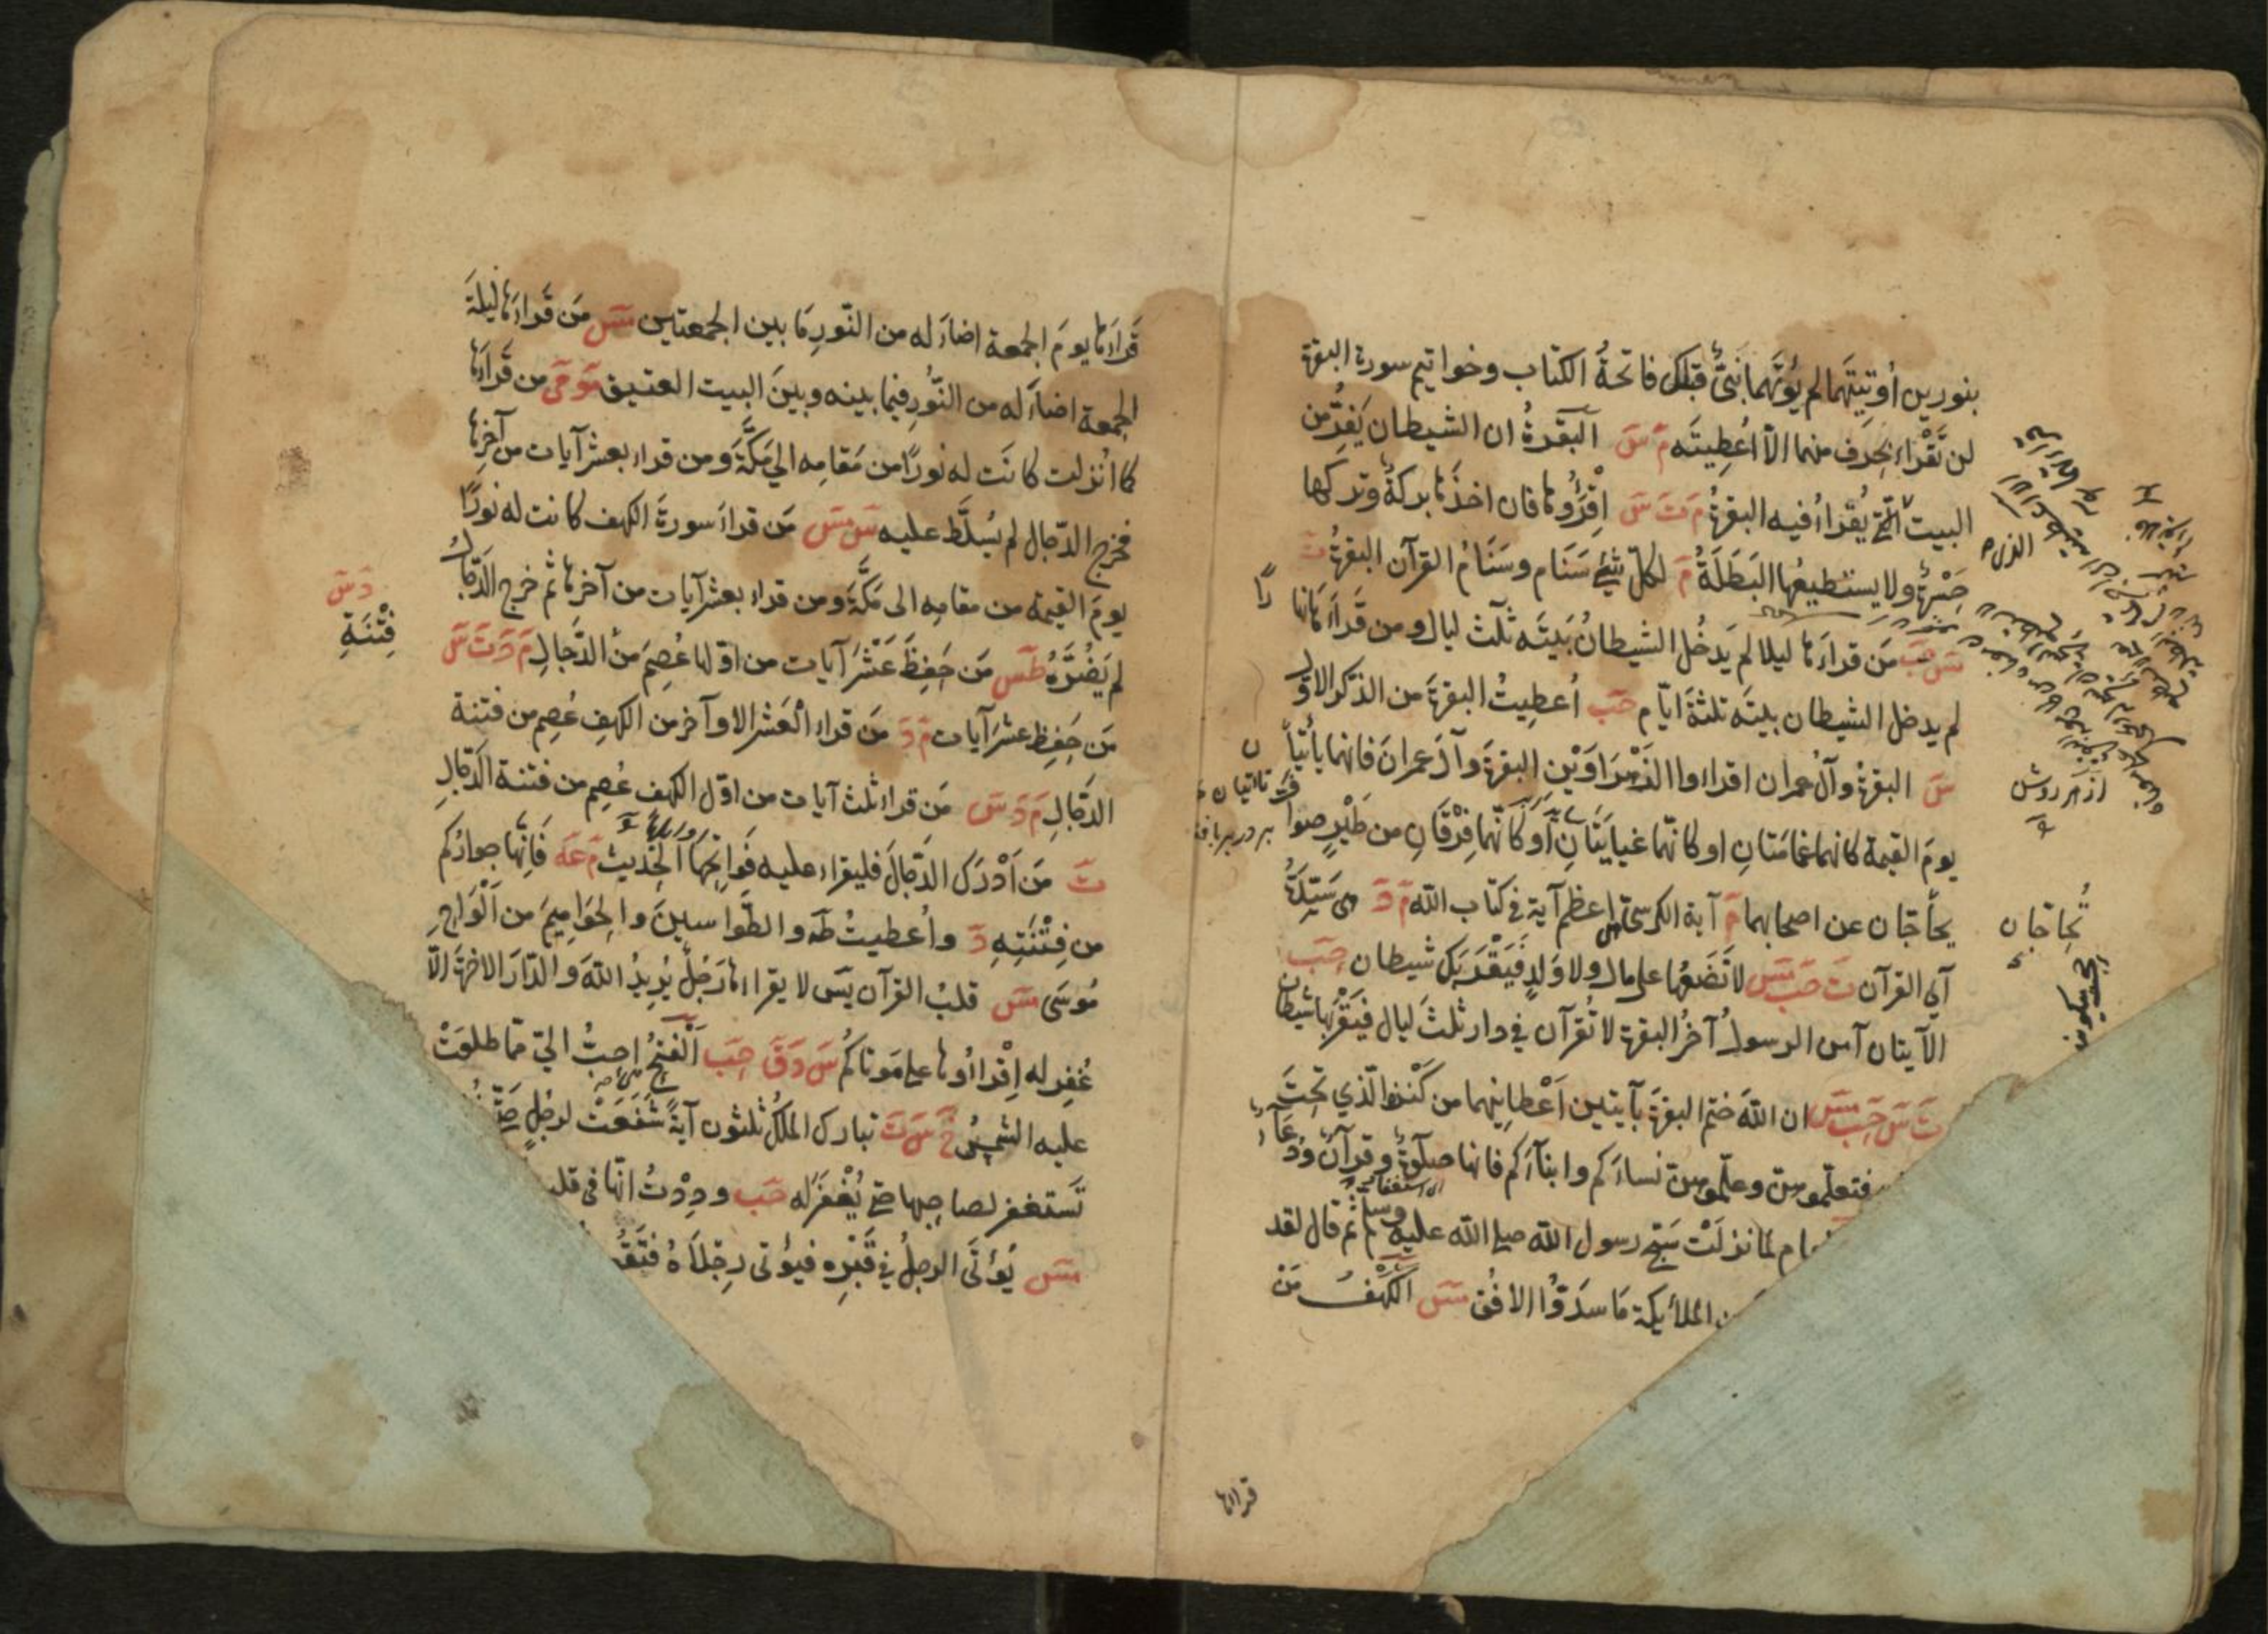 بنورين أوتيتهما لم يؤتهما نبي قبلك فاتحة الكتاب وخواتيم سورة البقرة
لن تقراء بحرف منهما الا اعطيته م س البقرة ان الشيطان يفر من
البيت الذي يقراء فيه البقرة م ت س اقرؤها فان اخذها بركة وتركها
حسرة ولا يستطيعها البطلة م لكل شئ سنام وسنام القرآن البقرة ت
مس حب من قراءها ليلا لم يدخل الشيطان بيته ثلث ليال ومن قراءها نهارا
لم يدخل الشيطان بيته ثلثة ايام حب أعطيت البقرة من الذكر الاول
س البقرة وآل عمران اقراوا الزهراوين البقرة وآل عمران فانهما يأتيان
يوم القيمة كانهما غمامتان او كانهما غيايتان او كانهما فرقان من طير صواف
يحاجان عن اصحابهما م آية الكرسي اعظم آية في كتاب الله م د هي سيدة
آي القرآن ت حب مس لا تضعها على مال ولا ولد فيقربك شيطان حب
الآيتان آمن الرسول آخر البقرة لا تقرآن في دار ثلث ليال فيقربها شيطان
ت س حب مس ان الله ختم البقرة بآيتين اعطانيهما من كنزه الذي تحت
فتعلموهن وعلموهن نساءكم وابناءكم فانها صلوة وقرآن ودعاء
لما نزلت سبح رسول الله صلى الله عليه وسلم ثم قال لقد
الملائكة ما سدوا الافق مس الكهف من
تحاجان
قراءها
قراءها يوم الجمعة اضاء له من النور ما بين الجمعتين مس من قراءها ليلة
الجمعة اضاء له من النور فيما بينه وبين البيت العتيق مو مي من قراءها
كما انزلت كانت له نورا من مقامه الى مكة ومن قراء بعشر آيات من آخرها
فخرج الدجال لم يسلط عليه س مس من قراء سورة الكهف كانت له نورا
يوم القيمة من مقامه الى مكة ومن قراء بعشر آيات من آخرها ثم خرج الدجال
لم يضره طس من حفظ عشر آيات من اولها عصم من الدجال م د ت س
د س
فتنة
من حفظ عشر آيات م د من قراء العشر الاواخر من الكهف عصم من فتنة
الدجال م د س من قراء ثلث آيات من اول الكهف عصم من فتنة الدجال
ت من ادرك الدجال فليقراء عليه فواتحها الحديث م عه فانها جواركم
من فتنته د وأعطيت طه والطواسين والحواميم من الواح
موسى مس قلب القرآن يس لا يقراءها رجل يريد الله والدار الآخرة الا
غفر له اقراؤها على موتاكم س د ق حب الفتح احب الي مما طلعت
عليه الشمس خ س ت تبارك الملك ثلثون آية شفعت لرجل حتى
تستغفر لصاحبها حتى يغفر له حب وددت انها في قلب
مس يؤتى الرجل في قبره فيؤتى رجلاه فتقو